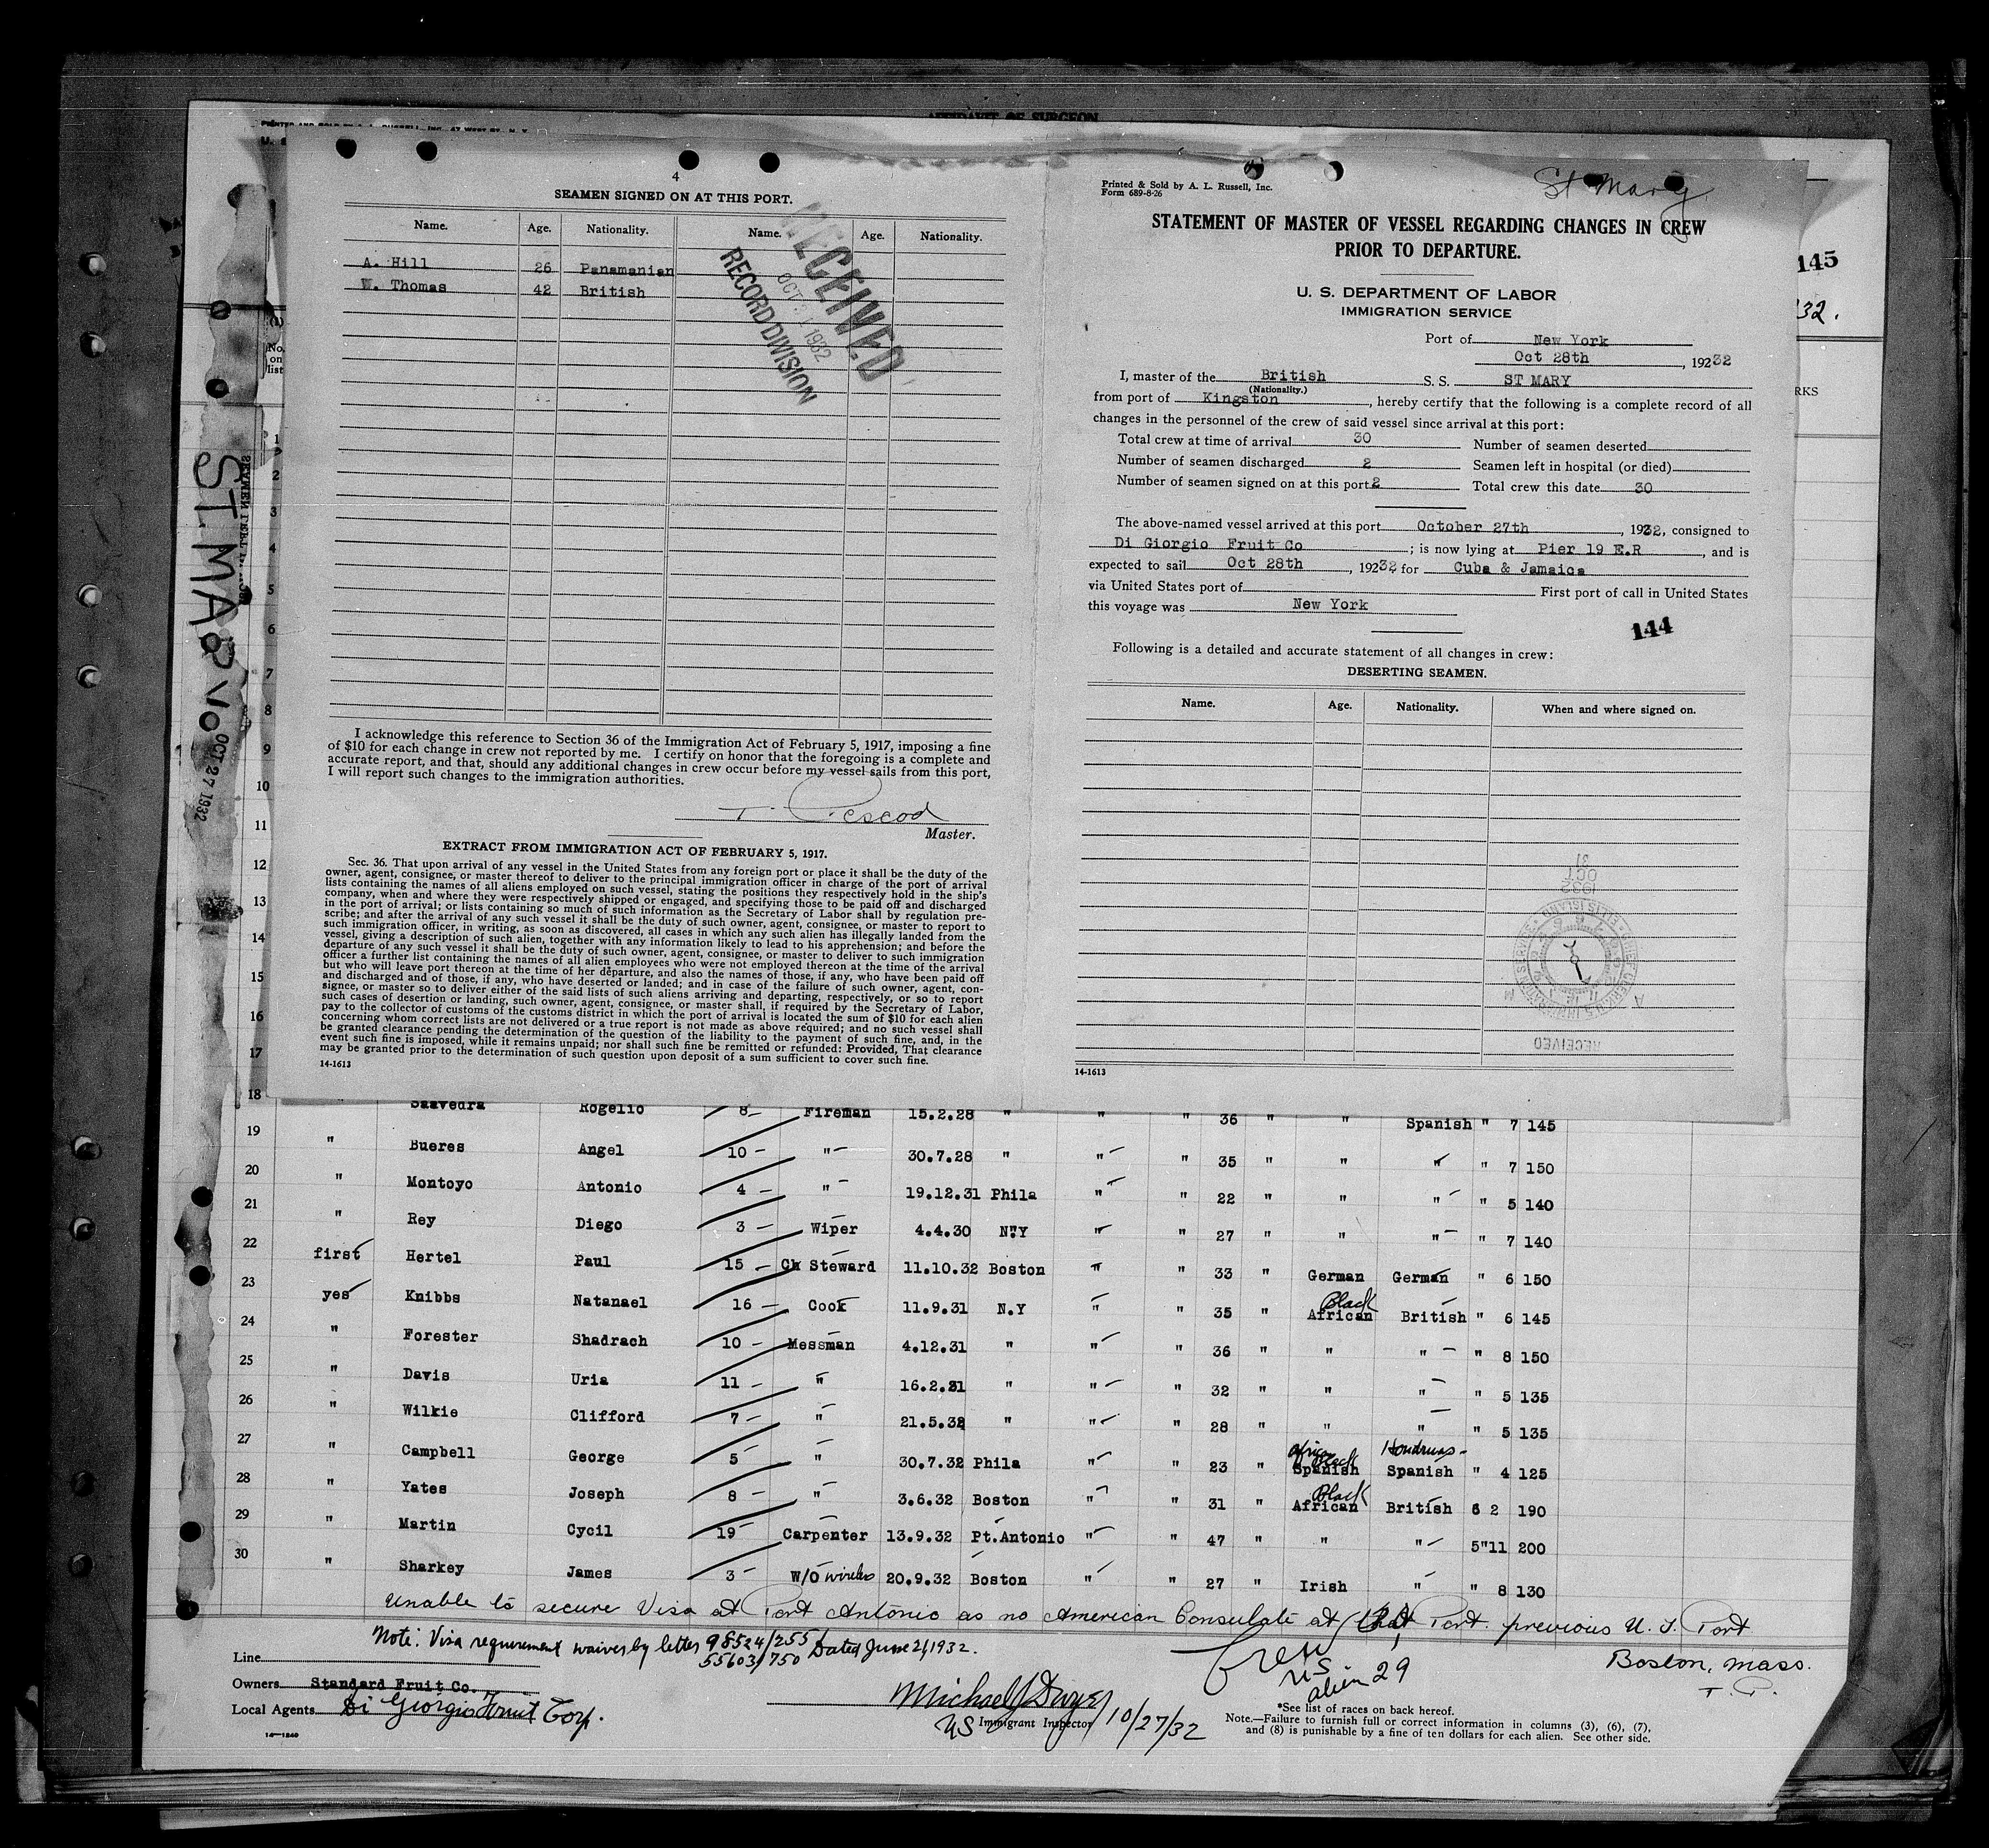 AFFIDAVIT OF SURGEON
PRINTED AND SOLD BY A. L. RUSSELL, INC., 47 WEST ST., N. Y.
U. S
4
SEAMEN SIGNED ON AT THIS PORT.
Name. Age. Nationality. Name. Age. Nationality.
A. Hill 26 Panamanian
W. Thomas 42 British
RECEIVED
OCT 1932
RECORD DIVISION
I acknowledge this reference to Section 36 of the Immigration Act of February 5, 1917, imposing a fine
of $10 for each change in crew not reported by me. I certify on honor that the foregoing is a complete and
accurate report, and that, should any additional changes in crew occur before my vessel sails from this port,
I will report such changes to the immigration authorities.
T. Pescod
Master.
EXTRACT FROM IMMIGRATION ACT OF FEBRUARY 5, 1917.
Sec. 36. That upon arrival of any vessel in the United States from any foreign port or place it shall be the duty of the
owner, agent, consignee, or master thereof to deliver to the principal immigration officer in charge of the port of arrival
lists containing the names of all aliens employed on such vessel, stating the positions they respectively hold in the ship's
company, when and where they were respectively shipped or engaged, and specifying those to be paid off and discharged
in the port of arrival; or lists containing so much of such information as the Secretary of Labor shall by regulation pre-
scribe; and after the arrival of any such vessel it shall be the duty of such owner, agent, consignee, or master to report to
such immigration officer, in writing, as soon as discovered, all cases in which any such alien has illegally landed from the
vessel, giving a description of such alien, together with any information likely to lead to his apprehension; and before the
departure of any such vessel it shall be the duty of such owner, agent, consignee, or master to deliver to such immigration
officer a further list containing the names of all alien employees who were not employed thereon at the time of the arrival
but who will leave port thereon at the time of her departure, and also the names of those, if any, who have been paid off
and discharged and of those, if any, who have deserted or landed; and in case of the failure of such owner, agent, con-
signee, or master so to deliver either of the said lists of such aliens arriving and departing, respectively, or so to report
such cases of desertion or landing, such owner, agent, consignee, or master shall, if required by the Secretary of Labor,
pay to the collector of customs of the customs district in which the port of arrival is located the sum of $10 for each alien
concerning whom correct lists are not delivered or a true report is not made as above required; and no such vessel shall
be granted clearance pending the determination of the question of the liability to the payment of such fine, and, in the
event such fine is imposed, while it remains unpaid; nor shall such fine be remitted or refunded: Provided, That clearance
may be granted prior to the determination of such question upon deposit of a sum sufficient to cover such fine.
14-1613
Printed & Sold by A. L. Russell, Inc.
Form 689-8-26
St Mary
STATEMENT OF MASTER OF VESSEL REGARDING CHANGES IN CREW
PRIOR TO DEPARTURE.
U. S. DEPARTMENT OF LABOR
IMMIGRATION SERVICE
Port of New York
Oct 28th, 19232
I, master of the British S. S. ST MARY
(Nationality.)
from port of Kingston, hereby certify that the following is a complete record of all
changes in the personnel of the crew of said vessel since arrival at this port:
Total crew at time of arrival 30 Number of seamen deserted
Number of seamen discharged 2 Seamen left in hospital (or died)
Number of seamen signed on at this port 2 Total crew this date 30
The above-named vessel arrived at this port October 27th, 1932, consigned to
Di Giorgio Fruit Co; is now lying at Pier 19 E.R, and is
expected to sail Oct 28th, 19232 for Cuba & Jamaica
via United States port of First port of call in United States
this voyage was New York
144
Following is a detailed and accurate statement of all changes in crew:
DESERTING SEAMEN.
Name. Age. Nationality. When and where signed on.
31
OCT
1932
ELLIS ISLAND
RECEIVED
14-1613
145
32.
RKS
ST. MARY
OCT 27 1932
No. on list
1
2
3
4
5
6
7
8
9
10
11
12
13
14
15
16
17
18 Saavedra Rogelio 8 Fireman 15.2.28 " " " 36 " " Spanish " 7 145
19 " Bueres Angel 10 " 30.7.28 " " " 35 " " " " 7 150
20 " Montoyo Antonio 4 " 19.12.31 Phila " " 22 " " " " 5 140
21 " Rey Diego 3 Wiper 4.4.30 N.Y " " 27 " " " " 7 140
22 first Hertel Paul 15 Ch Steward 11.10.32 Boston " " 33 " German German " 6 150
23 yes Knibbs Natanael 16 Cook 11.9.31 N.Y " " 35 " Black African British " 6 145
24 " Forester Shadrach 10 Messman 4.12.31 " " " 36 " " " " 8 150
25 " Davis Uria 11 " 16.2.31 " " " 32 " " " " 5 135
26 " Wilkie Clifford 7 " 21.5.32 " " " 28 " " " " 5 135
27 " Campbell George 5 " 30.7.32 Phila " " 23 " African Black Spanish Honduras Spanish " 4 125
28 " Yates Joseph 8 " 3.6.32 Boston " " 31 " Black African British 6 2 190
29 " Martin Cycil 19 Carpenter 13.9.32 Pt.Antonio " " 47 " " " 5"11 200
30 " Sharkey James 3 W/O wireless 20.9.32 Boston " " 27 " Irish " " 8 130
Unable to secure Visa at Port Antonio as no American Consulate at that Port. previous U. S. Port
Boston, Mass.
T. P.
Note: Visa requirement waiver by letter 98524/255 Dated June 21, 1932.
55603/750
Line
Owners Standard Fruit Co.
Local Agents Di Giorgio Fruit Corp.
14—1240
Michael J Dwyer
US Immigrant Inspector 10/27/32
Crew 30
US
alien 29
*See list of races on back hereof.
Note.—Failure to furnish full or correct information in columns (3), (6), (7),
and (8) is punishable by a fine of ten dollars for each alien. See other side.